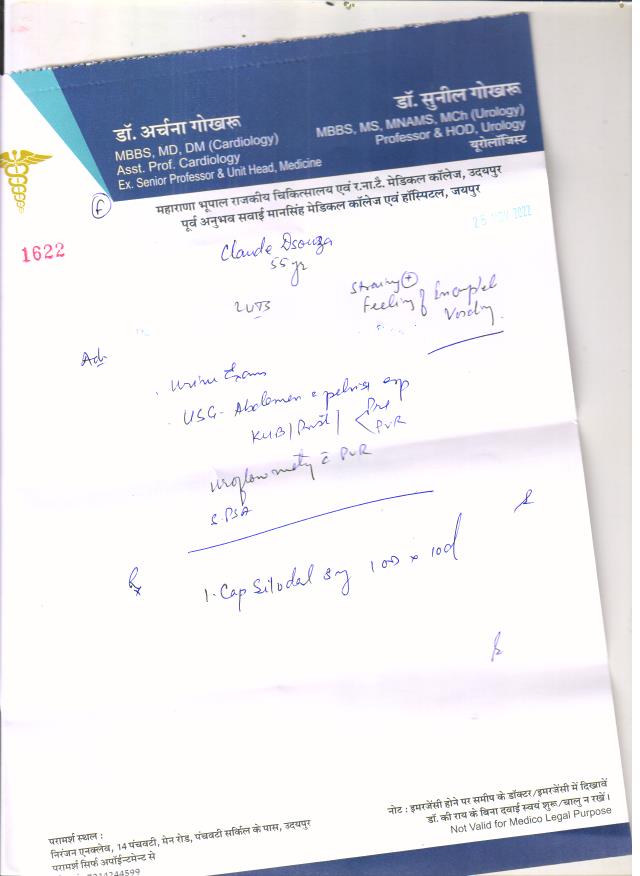 डॉ. अर्चना गोखरू
MBBS, MD, DM (Cardiology)
Asst. Prof. Cardiology
Ex. Senior Professor & Unit Head, Medicine
डॉ. सुनील गोखरू
MBBS, MS, MNAMS, MCh (Urology)
Professor & HOD, Urology
यूरोलॉजिस्ट
महाराणा भूपाल राजकीय चिकित्सालय एवं र.ना.टै. मेडिकल कॉलेज, उदयपुर
पूर्व अनुभव सवाई मानसिंह मेडिकल कॉलेज एवं हॉस्पिटल, जयपुर
F
1622
25 NOV 2022
Claude Dsouza
55 yr
LUTS
Straining +
Feeling of
Voiding
Ad.
Urine Exam
USG - Abdomen c pelvis
KUB / Prost / Pre
PVR
Uroflowmetry c PVR
S. PSA
Rx
1. Cap Silodal 8mg 1 OD x 10d
परामर्श स्थल :
निरंजन एनक्लेव, 14 पंचवटी, मेन रोड, पंचवटी सर्किल के पास, उदयपुर
परामर्श सिर्फ अपॉईन्टमेन्ट से
नोट : इमरजेंसी होने पर समीप के डॉक्टर/इमरजेंसी में दिखावें
डॉ. की राय के बिना दवाई स्वयं शुरू/चालु न रखें।
Not Valid for Medico Legal Purpose